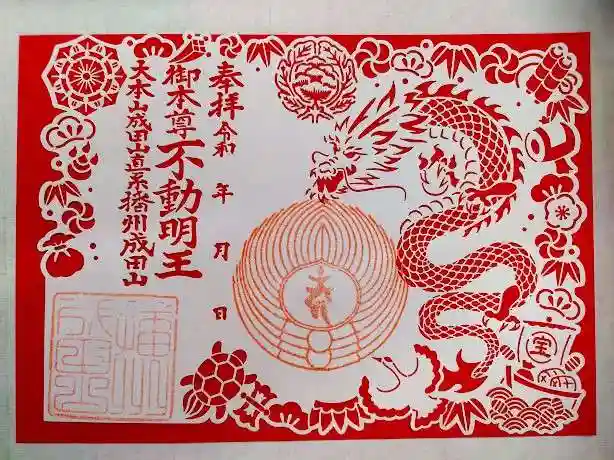 奉拝 令和 年 月 日
御本尊不動明王
大本山成田山直系播州成田山
宝